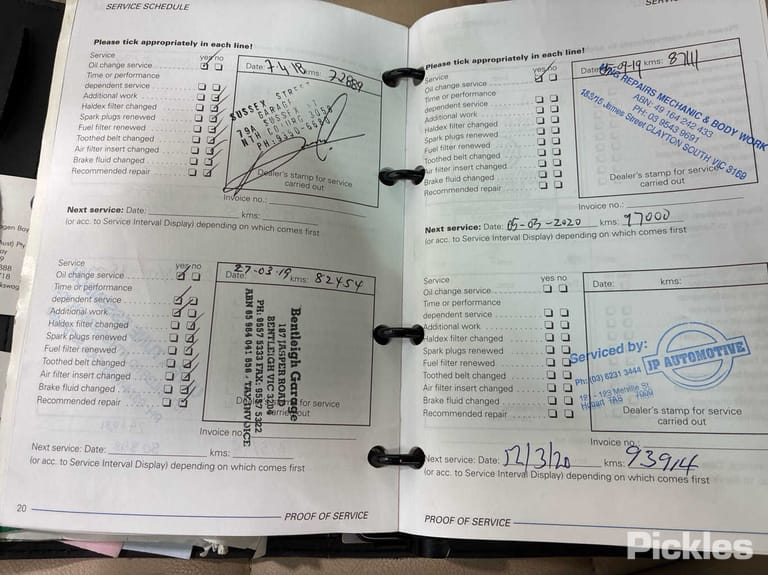 SERVICE SCHEDULE
Please tick appropriately in each line!
Service yes no
Oil change service
Time or performance
dependent service
Additional work
Haldex filter changed
Spark plugs renewed
Fuel filter renewed
Toothed belt changed
Air filter insert changed
Brake fluid changed
Recommended repair
Date: 7.4.18 kms: 72889
SUSSEX STREET
GARAGE
79A SUSSEX ST
NTH COBURG 3058
Dealer's stamp for service
carried out
Invoice no.:
Next service: Date: kms:
(or acc. to Service Interval Display) depending on which comes first
Service yes no
Oil change service
Time or performance
dependent service
Additional work
Haldex filter changed
Spark plugs renewed
Fuel filter renewed
Toothed belt changed
Air filter insert changed
Brake fluid changed
Recommended repair
Date: 27-03-19 kms: 82454
Bentleigh Garage
187 JASPER ROAD
BENTLEIGH VIC 3204
PH: 9557 5333 FAX: 9557 5322
ABN 65 964 041 596 - TAX INVOICE
for service
carried out
Invoice no
Next service: Date: kms:
(or acc. to Service Interval Display) depending on which comes first
20
PROOF OF SERVICE
Please tick appropriately in each line!
Service yes no
Oil change service
Time or performance
dependent service
Additional work
Haldex filter changed
Spark plugs renewed
Fuel filter renewed
Toothed belt changed
Air filter insert changed
Brake fluid changed
Recommended repair
Date: 05-09-19 kms: 87111
REPAIRS MECHANIC & BODY WORK
ABN: 49 164 242 433
PH: 03 9543 9691
James Street CLAYTON SOUTH VIC 3169
Dealer's stamp for service
carried out
Invoice no.:
Next service: Date: 05-03-2020 kms: 97000
(or acc. to Service Interval Display) depending on which comes first
Service yes no
Oil change service
Time or performance
dependent service
Additional work
Haldex filter changed
Spark plugs renewed
Fuel filter renewed
Toothed belt changed
Air filter insert changed
Brake fluid changed
Recommended repair
Date: kms:
Serviced by:
JP AUTOMOTIVE
Ph: (03) 6231 3444
123 Melville St
Hobart TAS 7000
Dealer's stamp for service
carried out
Invoice no.:
Next service: Date: 12/3/20 kms: 93914
(or acc. to Service Interval Display) depending on which comes first
PROOF OF SERVICE
Pickles